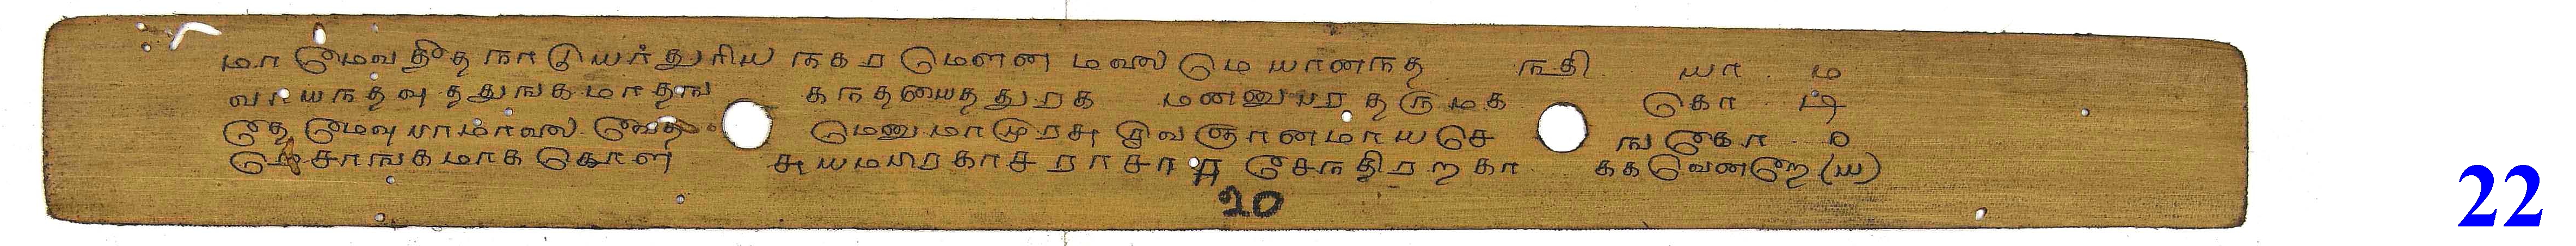 மா மேவதீத நாடுயர்துரிய நகர மௌன மவுல மெயானநத நதி யா ம
வாயநதவு ததுஙகமாதங கநதயைத துரக மனனுயர தருமக கொ டி
தே மேவு யாமாவல வேத மெனுமாமுரசு சிவஞானமாயசெ ங கோ ல
தேசாஙகமாக கொள சுயமபிரகாச ராசா சேநதிரறகா ககவெனறே (ய)
20
22